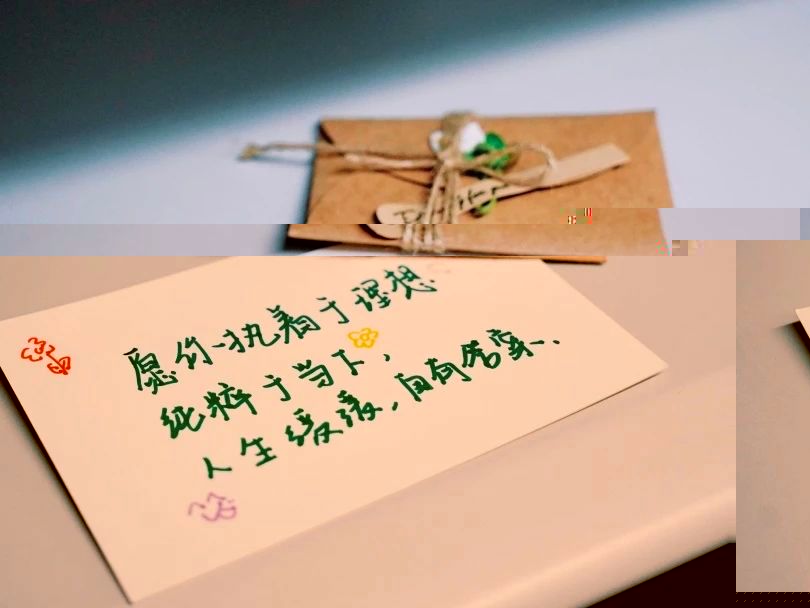 愿你执着于理想
纯粹于当下，
人生缓缓，自有答案..